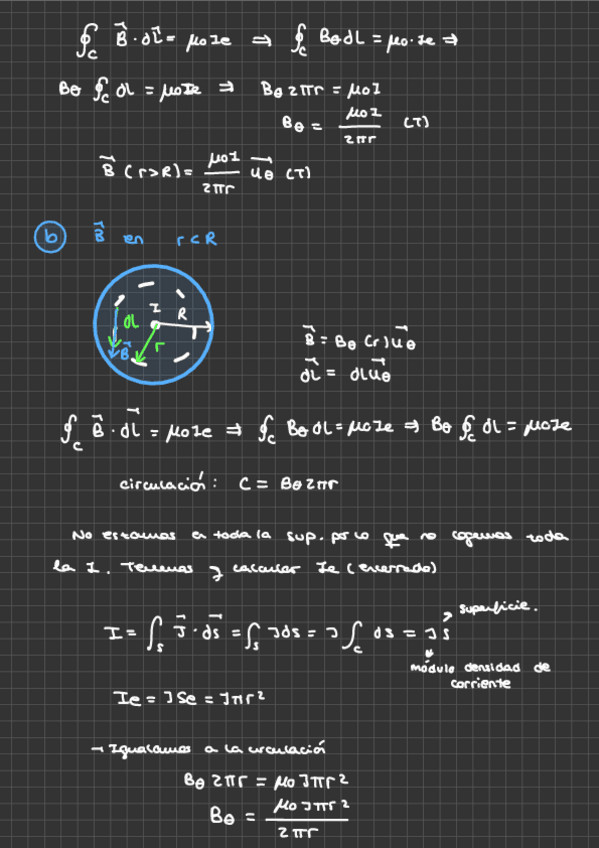 ∮_C B⃗ · dL⃗ = μ₀Ie ⇒ ∮_C BθdL = μ₀·Ie ⇒
Bθ ∮_C dL = μ₀Ie ⇒ Bθ 2πr = μ₀I
Bθ = μ₀I / 2πr (T)
B⃗ (r>R) = μ₀I / 2πr u⃗θ (T)
ⓑ B⃗ en r<R
I
R
dL
B⃗
r
B⃗ = Bθ (r) u⃗θ
dL⃗ = dL u⃗θ
∮_C B⃗ · dL⃗ = μ₀Ie ⇒ ∮_C BθdL = μ₀Ie ⇒ Bθ ∮_C dL = μ₀Ie
circulación: C = Bθ2πr
No estamos en toda la sup. por lo que no cogemos toda
la I. Tenemos q calcular Ie (encerrada)
I = ∫_S J⃗ · ds⃗ = ∫_S Jds = J ∫_C ds = J S
superficie.
módulo densidad de
corriente
Ie = JSe = Jπr²
→ Igualamos a la circulación
Bθ 2πr = μ₀Jπr²
Bθ = μ₀Jπr² / 2πr